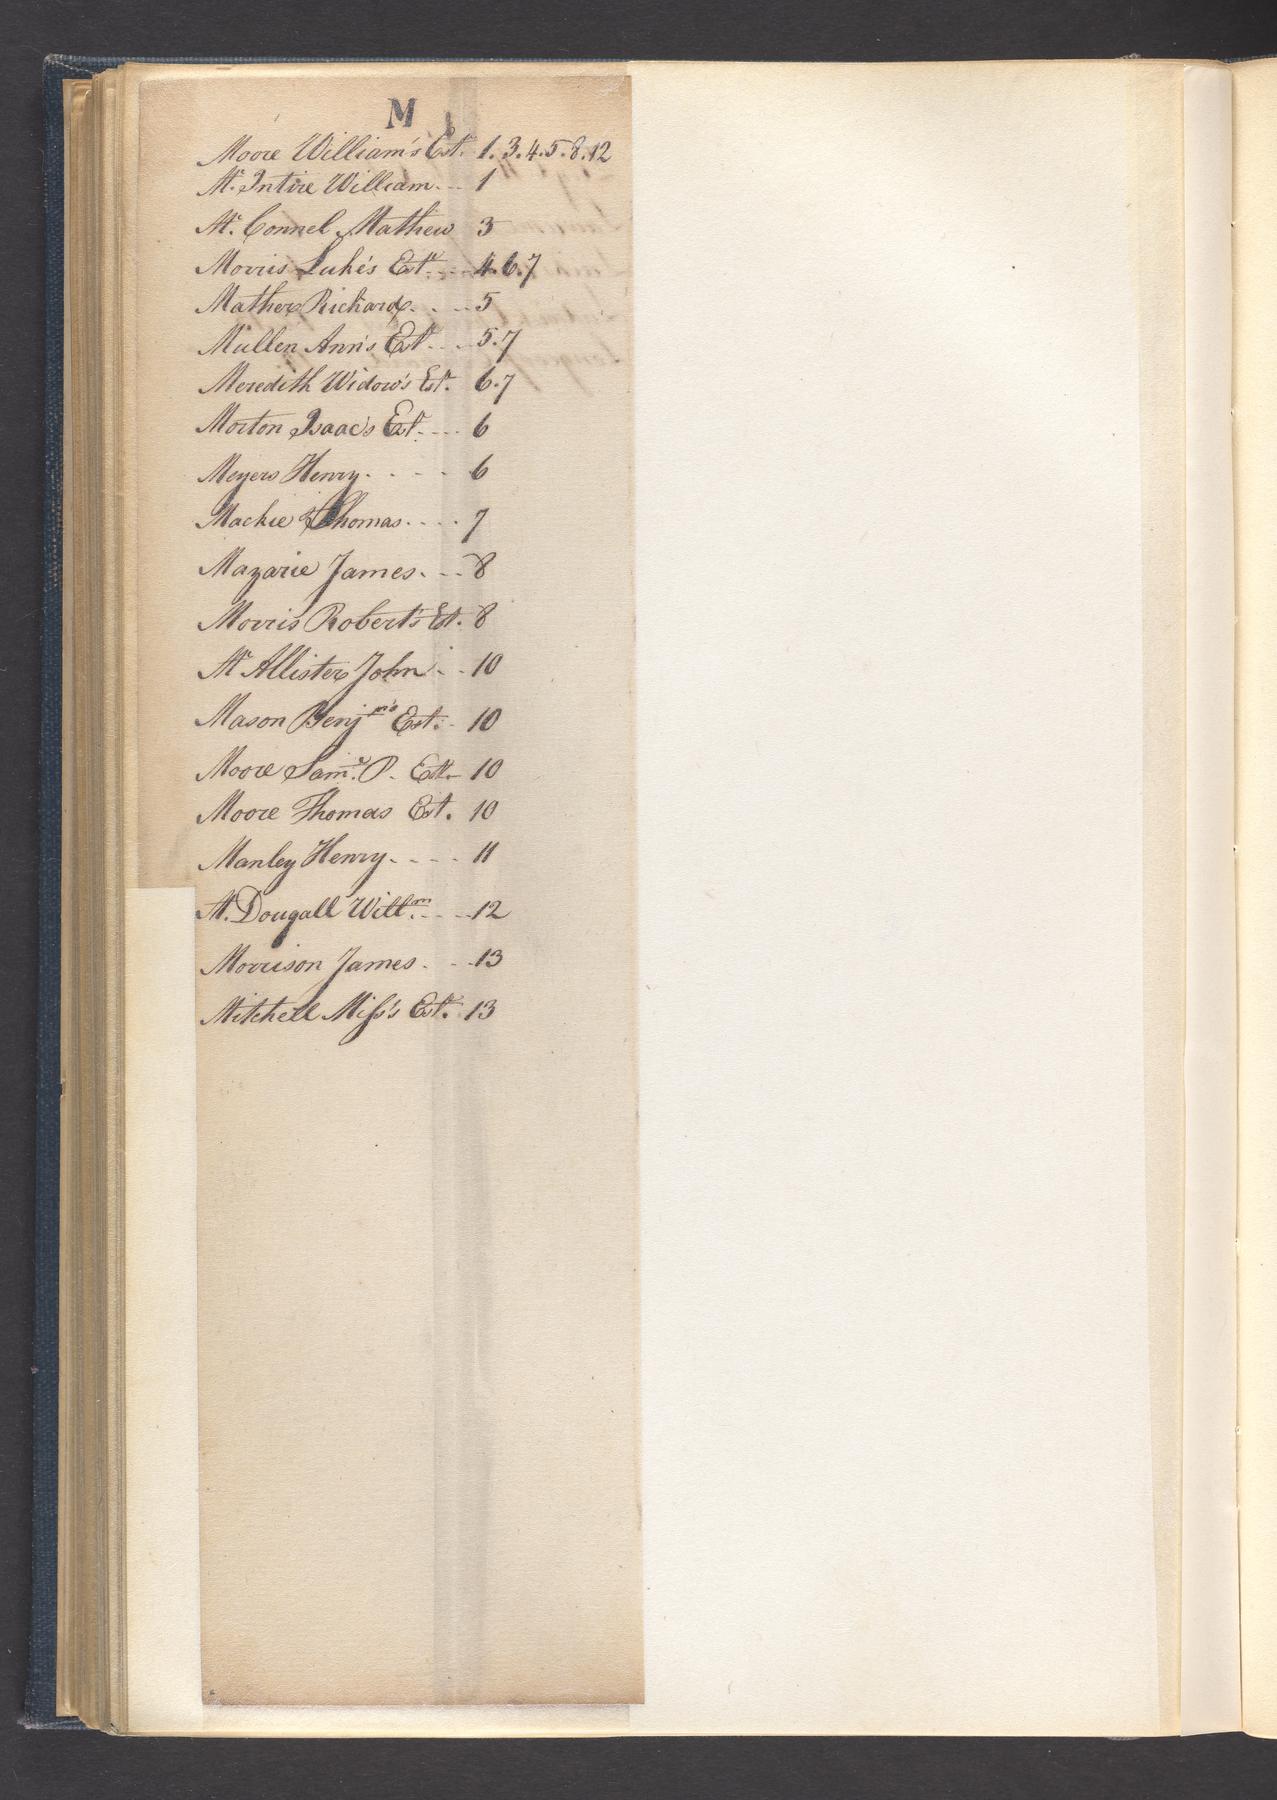 M
Moore William's Est. 1. 3. 4. 5. 8. 12
Mc. Intire William. - - 1
Mc. Connel Mathew 3
Morris Luke's Est. - - - 4. 6. 7
Mather Richard. - - - 5
Mullen Ann's Est - - - 5. 7
Meredith Widow's Est. 6. 7
Morton Isaac's Est. - - - 6
Meyers Henry - - - - 6
Mackie Thomas - - - - 7
Mazarie James. - - 8
Morris Robert's Est. 8
Mc Allister John - - 10
Mason Benjms Est. - 10
Moore Saml. P. Est. 10
Moore Thomas Est. 10
Manley Henry - - - - 11
Mc. Dougall Willm. - - - 12
Morrison James - - - 13
Mitchell Miss's Est. 13